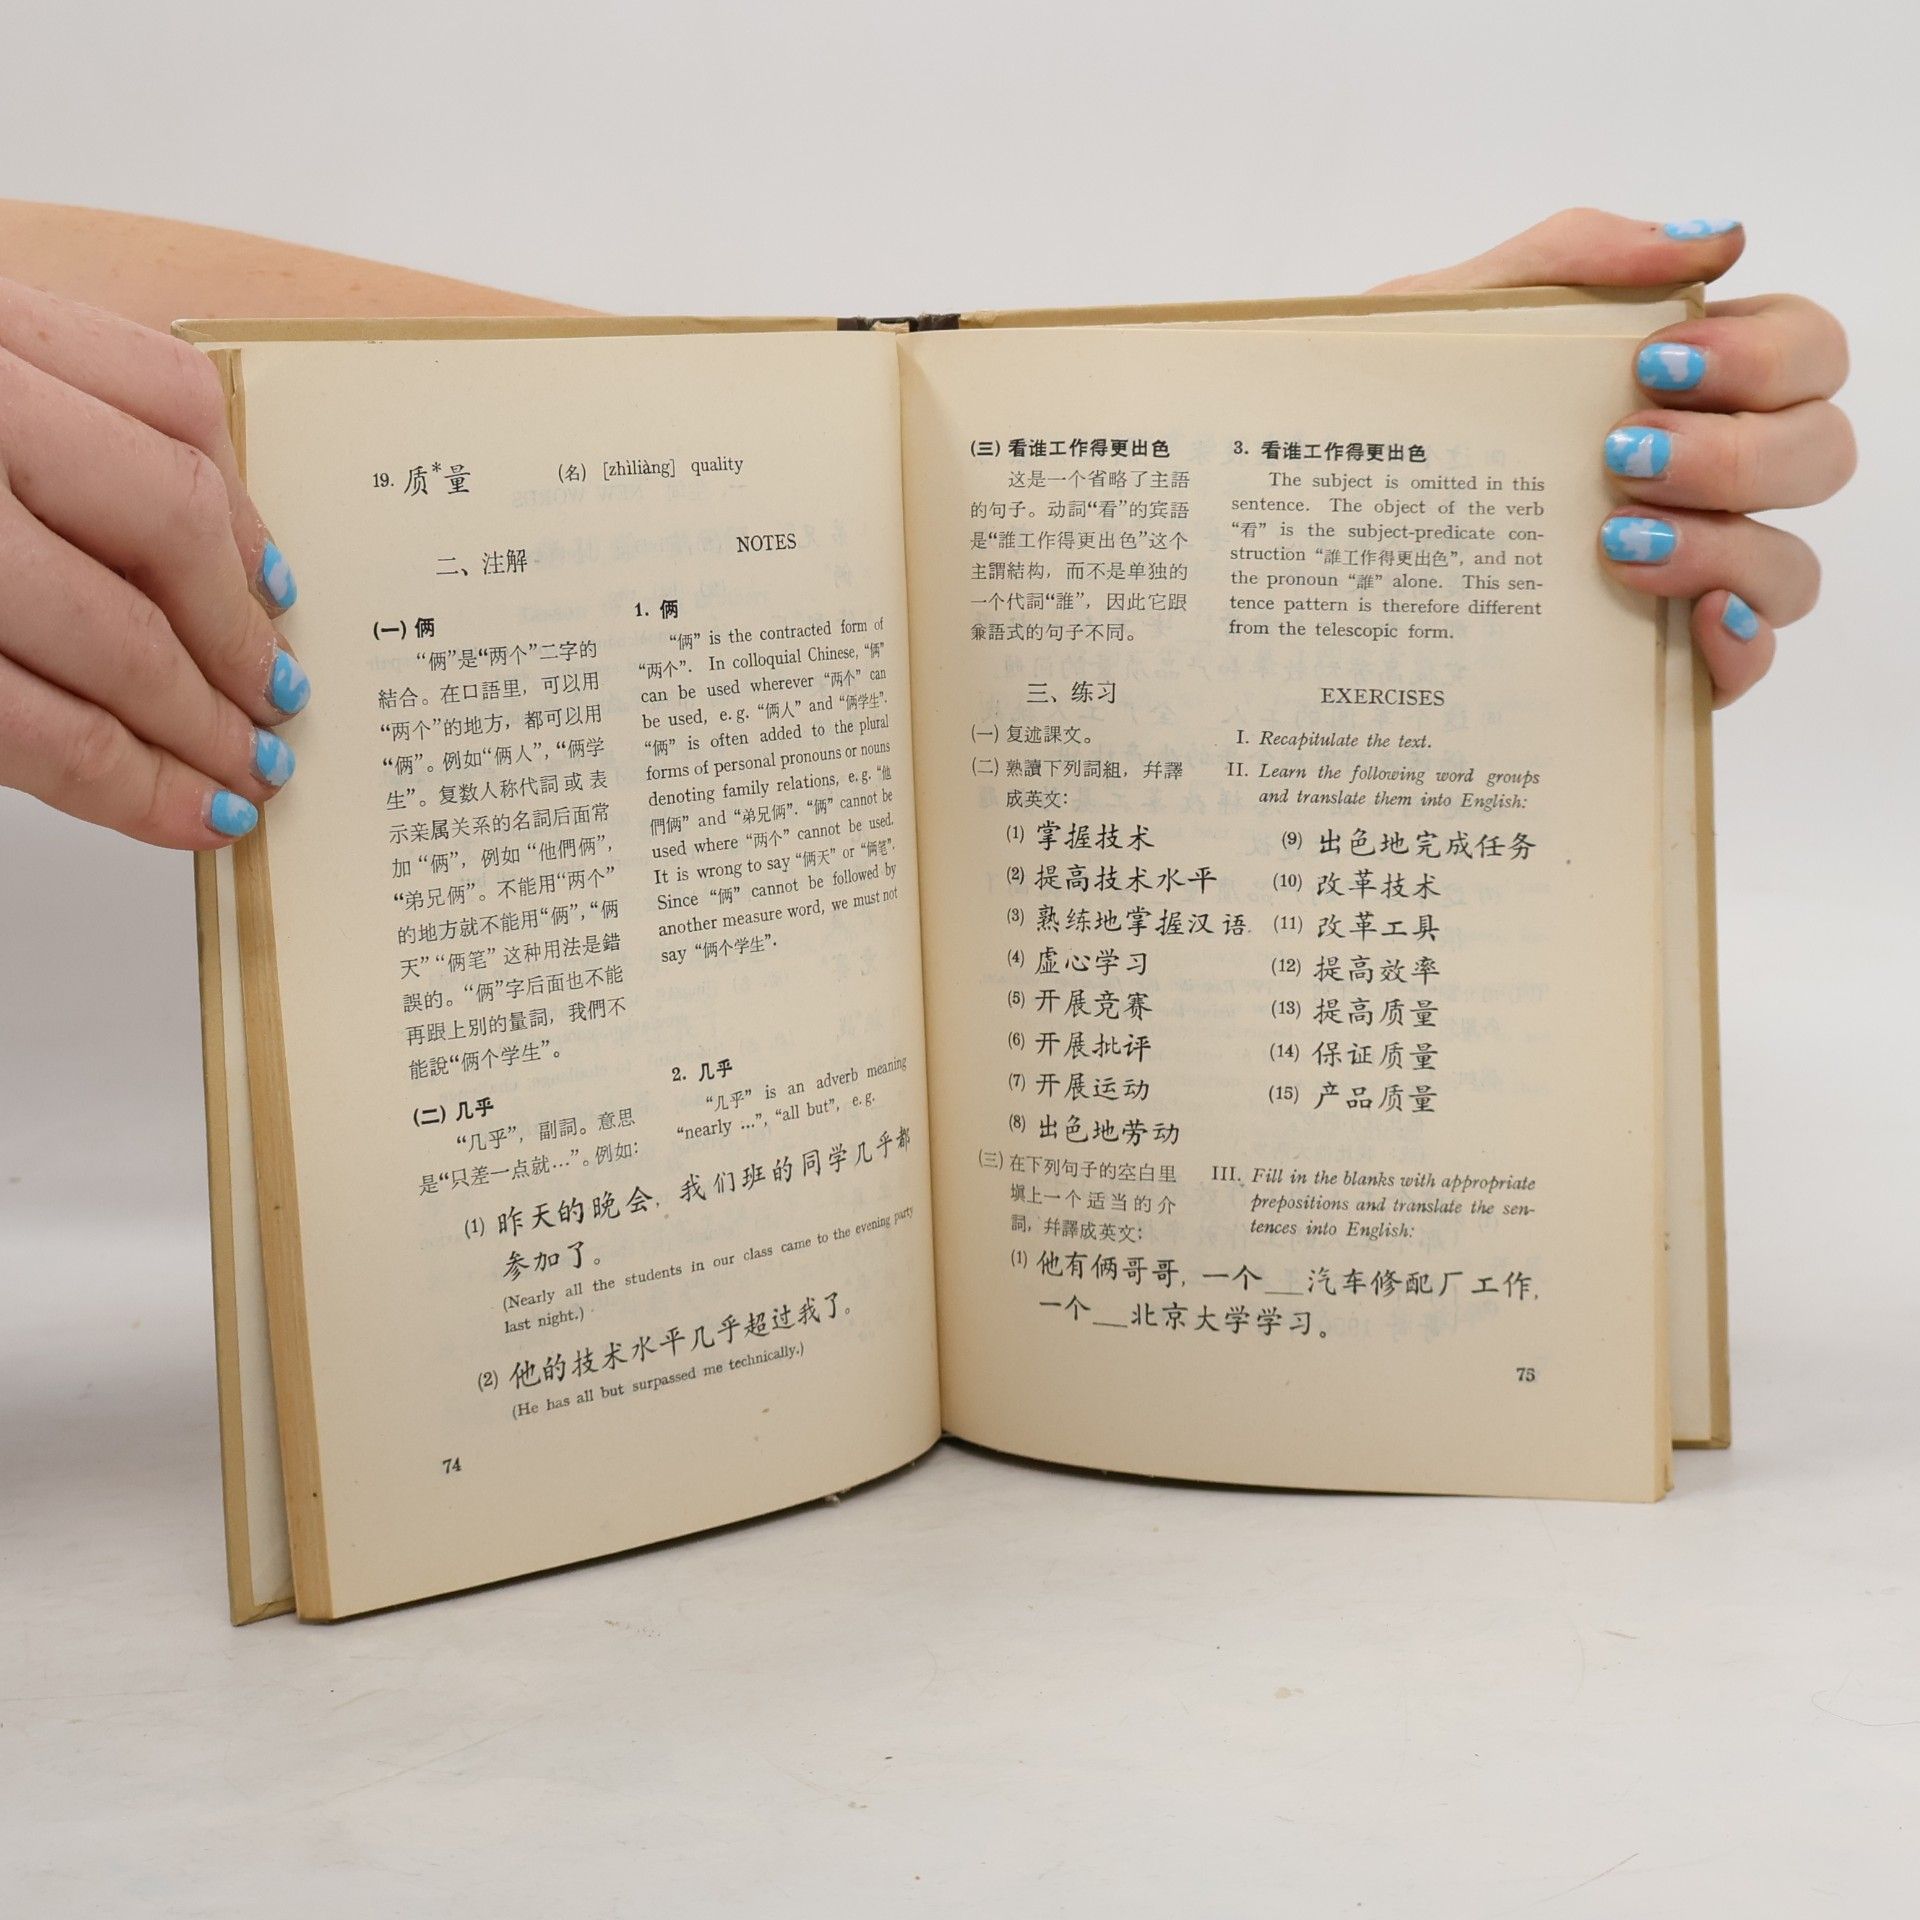 19. 质*量 (名) [zhìliàng] quality
二、注解
NOTES
(一) 俩
“俩”是“两个”二字的
結合。在口語里，可以用
“两个”的地方，都可以用
“俩”。例如“俩人”，“俩学
生”。复数人称代詞或表
示亲属关系的名詞后面常
加“俩”，例如“他們俩”，
“弟兄俩”。不能用“两个”
的地方就不能用“俩”，“俩
天”“俩笔”这种用法是錯
誤的。“俩”字后面也不能
再跟上別的量詞，我們不
能說“俩个学生”。
1. 俩
“俩” is the contracted form of
“两个”. In colloquial Chinese, “俩”
can be used wherever “两个” can
be used, e. g. “俩人” and “俩学生”.
“俩” is often added to the plural
forms of personal pronouns or nouns
denoting family relations, e. g. “他
們俩” and “弟兄俩”. “俩” cannot be
used where “两个” cannot be used.
It is wrong to say “俩天” or “俩笔”.
Since “俩” cannot be followed by
another measure word, we must not
say “俩个学生”.
(二) 几乎
“几乎”，副詞。意思
是“只差一点就…”。例如：
2. 几乎
“几乎” is an adverb meaning
“nearly ...”, “all but”, e. g.
(1) 昨天的晚会，我们班的同学几乎都
参加了。
(Nearly all the students in our class came to the evening party
last night.)
(2) 他的技术水平几乎超过我了。
(He has all but surpassed me technically.)
74
(三) 看谁工作得更出色
这是一个省略了主語
的句子。动詞“看”的宾語
是“誰工作得更出色”这个
主謂結构，而不是单独的
一个代詞“誰”，因此它跟
兼語式的句子不同。
3. 看谁工作得更出色
The subject is omitted in this
sentence. The object of the verb
“看” is the subject-predicate con-
struction “誰工作得更出色”, and not
the pronoun “誰” alone. This sen-
tence pattern is therefore different
from the telescopic form.
三、练习
EXERCISES
(一) 复述課文。
I. Recapitulate the text.
(二) 熟讀下列詞組，幷譯
成英文：
II. Learn the following word groups
and translate them into English:
(1) 掌握技术
(2) 提高技术水平
(3) 熟练地掌握汉语
(4) 虚心学习
(5) 开展竞赛
(6) 开展批评
(7) 开展运动
(8) 出色地劳动
(9) 出色地完成任务
(10) 改革技术
(11) 改革工具
(12) 提高效率
(13) 提高质量
(14) 保证质量
(15) 产品质量
(三) 在下列句子的空白里
塡上一个适当的介
詞，幷譯成英文：
III. Fill in the blanks with appropriate
prepositions and translate the sen-
tences into English:
(1) 他有俩哥哥，一个__汽车修配厂工作，
一个__北京大学学习。
75